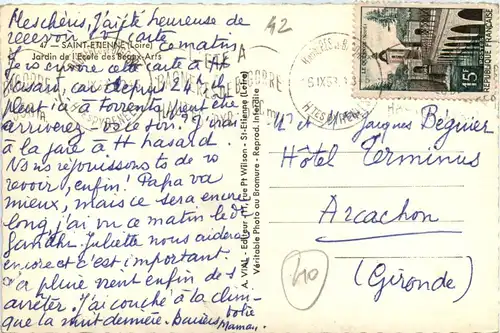 Mes chéris, J'ai été heureuse de
recevoir votre carte ce matin
47 - SAINT-ETIENNE (Loire)
Jardin de l'Ecole des Beaux-Arts
Je vous envoie cette carte à tt
hasard, car depuis 24h il
pleut ici à torrents, peut être
arriverez-vous ce soir. J'irai
à la gare à tt hasard.
Nous réjouissons de
revoir, enfin! Papa va
mieux, mais ce sera encore
long, j'ai vu ce matin le Dr
Juliette nous aidera
encore et c'est important.
pleure vient enfin de s'
arrêter. J'ai couché à la clini-
que la nuit dernière. Baisers
Maman
A. VIAL - Editeur, rue Pt Wilson - St-Etienne (Loire)
Véritable Photo au Bromure - Reprod. Interdite
42
REPUBLIQUE FRANÇAISE
15F
Mr et Me Jacques Béguier
Hôtel Terminus
Arcachon
(Gironde)
40